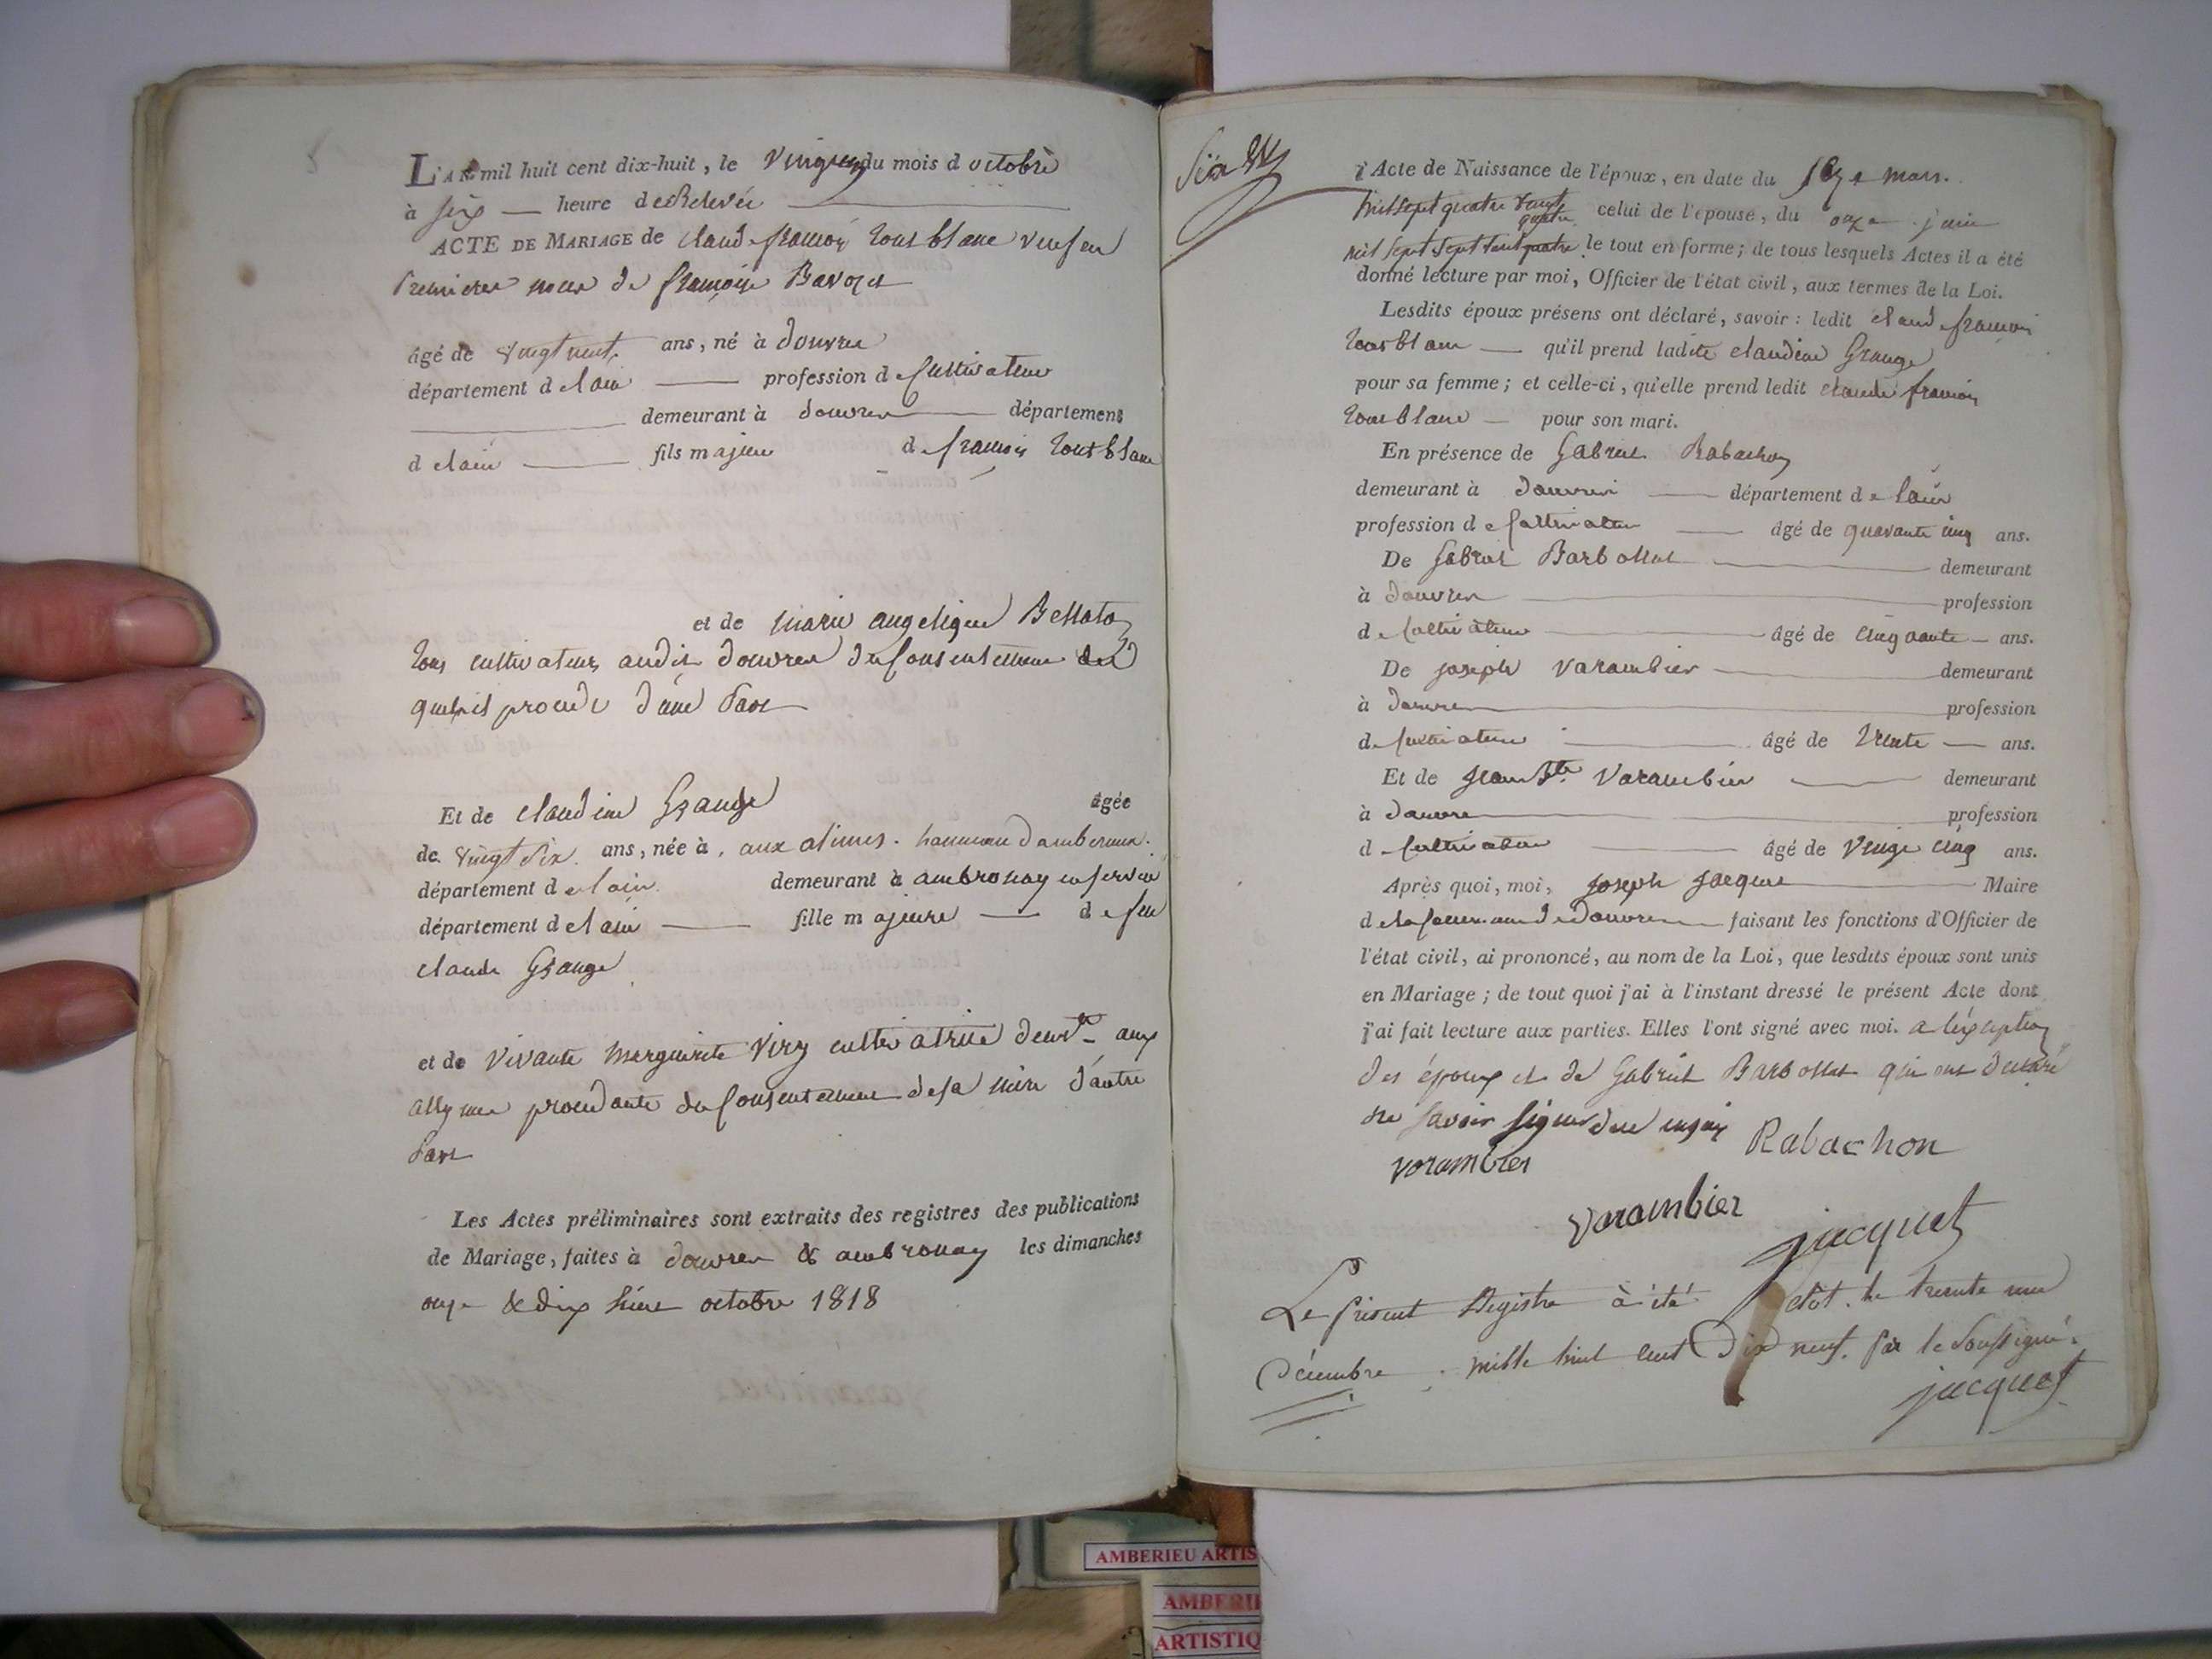 L'AN mil huit cent dix-huit, le du mois d octobre
à six heure de Relevée
ACTE DE MARIAGE de claude françois toutblanc veuf en
premieres noces de françoise Bavozet
âgé de vingt neuf ans, né à douvres
département d elain profession d e Cultivateur
demeurant à douvres département
d elain fils m ajeur d e françois toutblanc
et de marie angelique
tous cultivateurs audit douvres du consentement des
quels il procede d'une part
Et de claudine Grange âgée
de vingt six ans, née à, aux alimes. hammeau d'amberieux.
département d e lain demeurant à ambronay en service
département d elain fille m ajeure d e feu
claude Grange
et de vivante marguerite Viry cultivatrice aux
allymes procedante du consentement de sa mere d'autre
part
Les Actes préliminaires sont extraits des registres des publications
de Mariage, faites à douvres & ambronay les dimanches
onze & dix huit octobre 1818
Six
l'Acte de Naissance de l'époux, en date du mars.
mil sept quatre vingt
quatre celui de l'épouse, du onze juin
mil sept quatre le tout en forme; de tous lesquels Actes il a été
donné lecture par moi, Officier de l'état civil, aux termes de la Loi.
Lesdits époux présens ont déclaré, savoir : ledit claude françois
toutblanc qu'il prend ladite claudine Grange
pour sa femme; et celle-ci, qu'elle prend ledit claude françois
toutblanc pour son mari.
En présence de Gabriel Rabachon
demeurant à douvres département d e lain
profession d e Cultivateur âgé de quarante cinq ans.
De Gabriel Barbollat demeurant
à douvres profession
d e Cultivateur âgé de cinquante ans.
De joseph varambier demeurant
à douvres profession
d e Cultivateur âgé de trente ans.
Et de jean Bte varambier demeurant
à douvres profession
d e Cultivateur âgé de vingt cinq ans.
Après quoi, moi, joseph jacquet Maire
d e la Commune de douvres faisant les fonctions d'Officier de
l'état civil, ai prononcé, au nom de la Loi, que lesdits époux sont unis
en Mariage; de tout quoi j'ai à l'instant dressé le présent Acte dont
j'ai fait lecture aux parties. Elles l'ont signé avec moi. a l'exception
des époux et de Gabriel Barbollat qui ont declaré
ne savoir signer
varambier Rabachon
varambier
jacquet
Le présent Registre à été clot le trente un
Décembre mille huit cent Dix neuf. par le Soussigné.
jacquet
AMBERIEU ARTIS
AMBERIE
ARTISTIQ